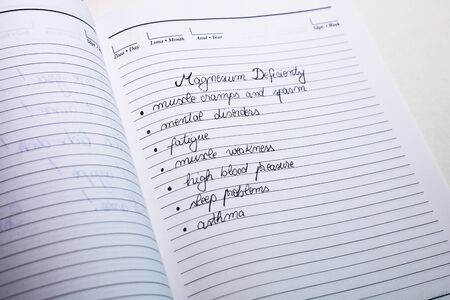 Ziua • Day
Luna • Month
Anul • Year
Săpt. • Week
Magnesium Deficienty
• muscle cramps and spasm
• mental disorders
• fatigue
• muscle weakness
• high blood preasure
• sleep problems
• asthma